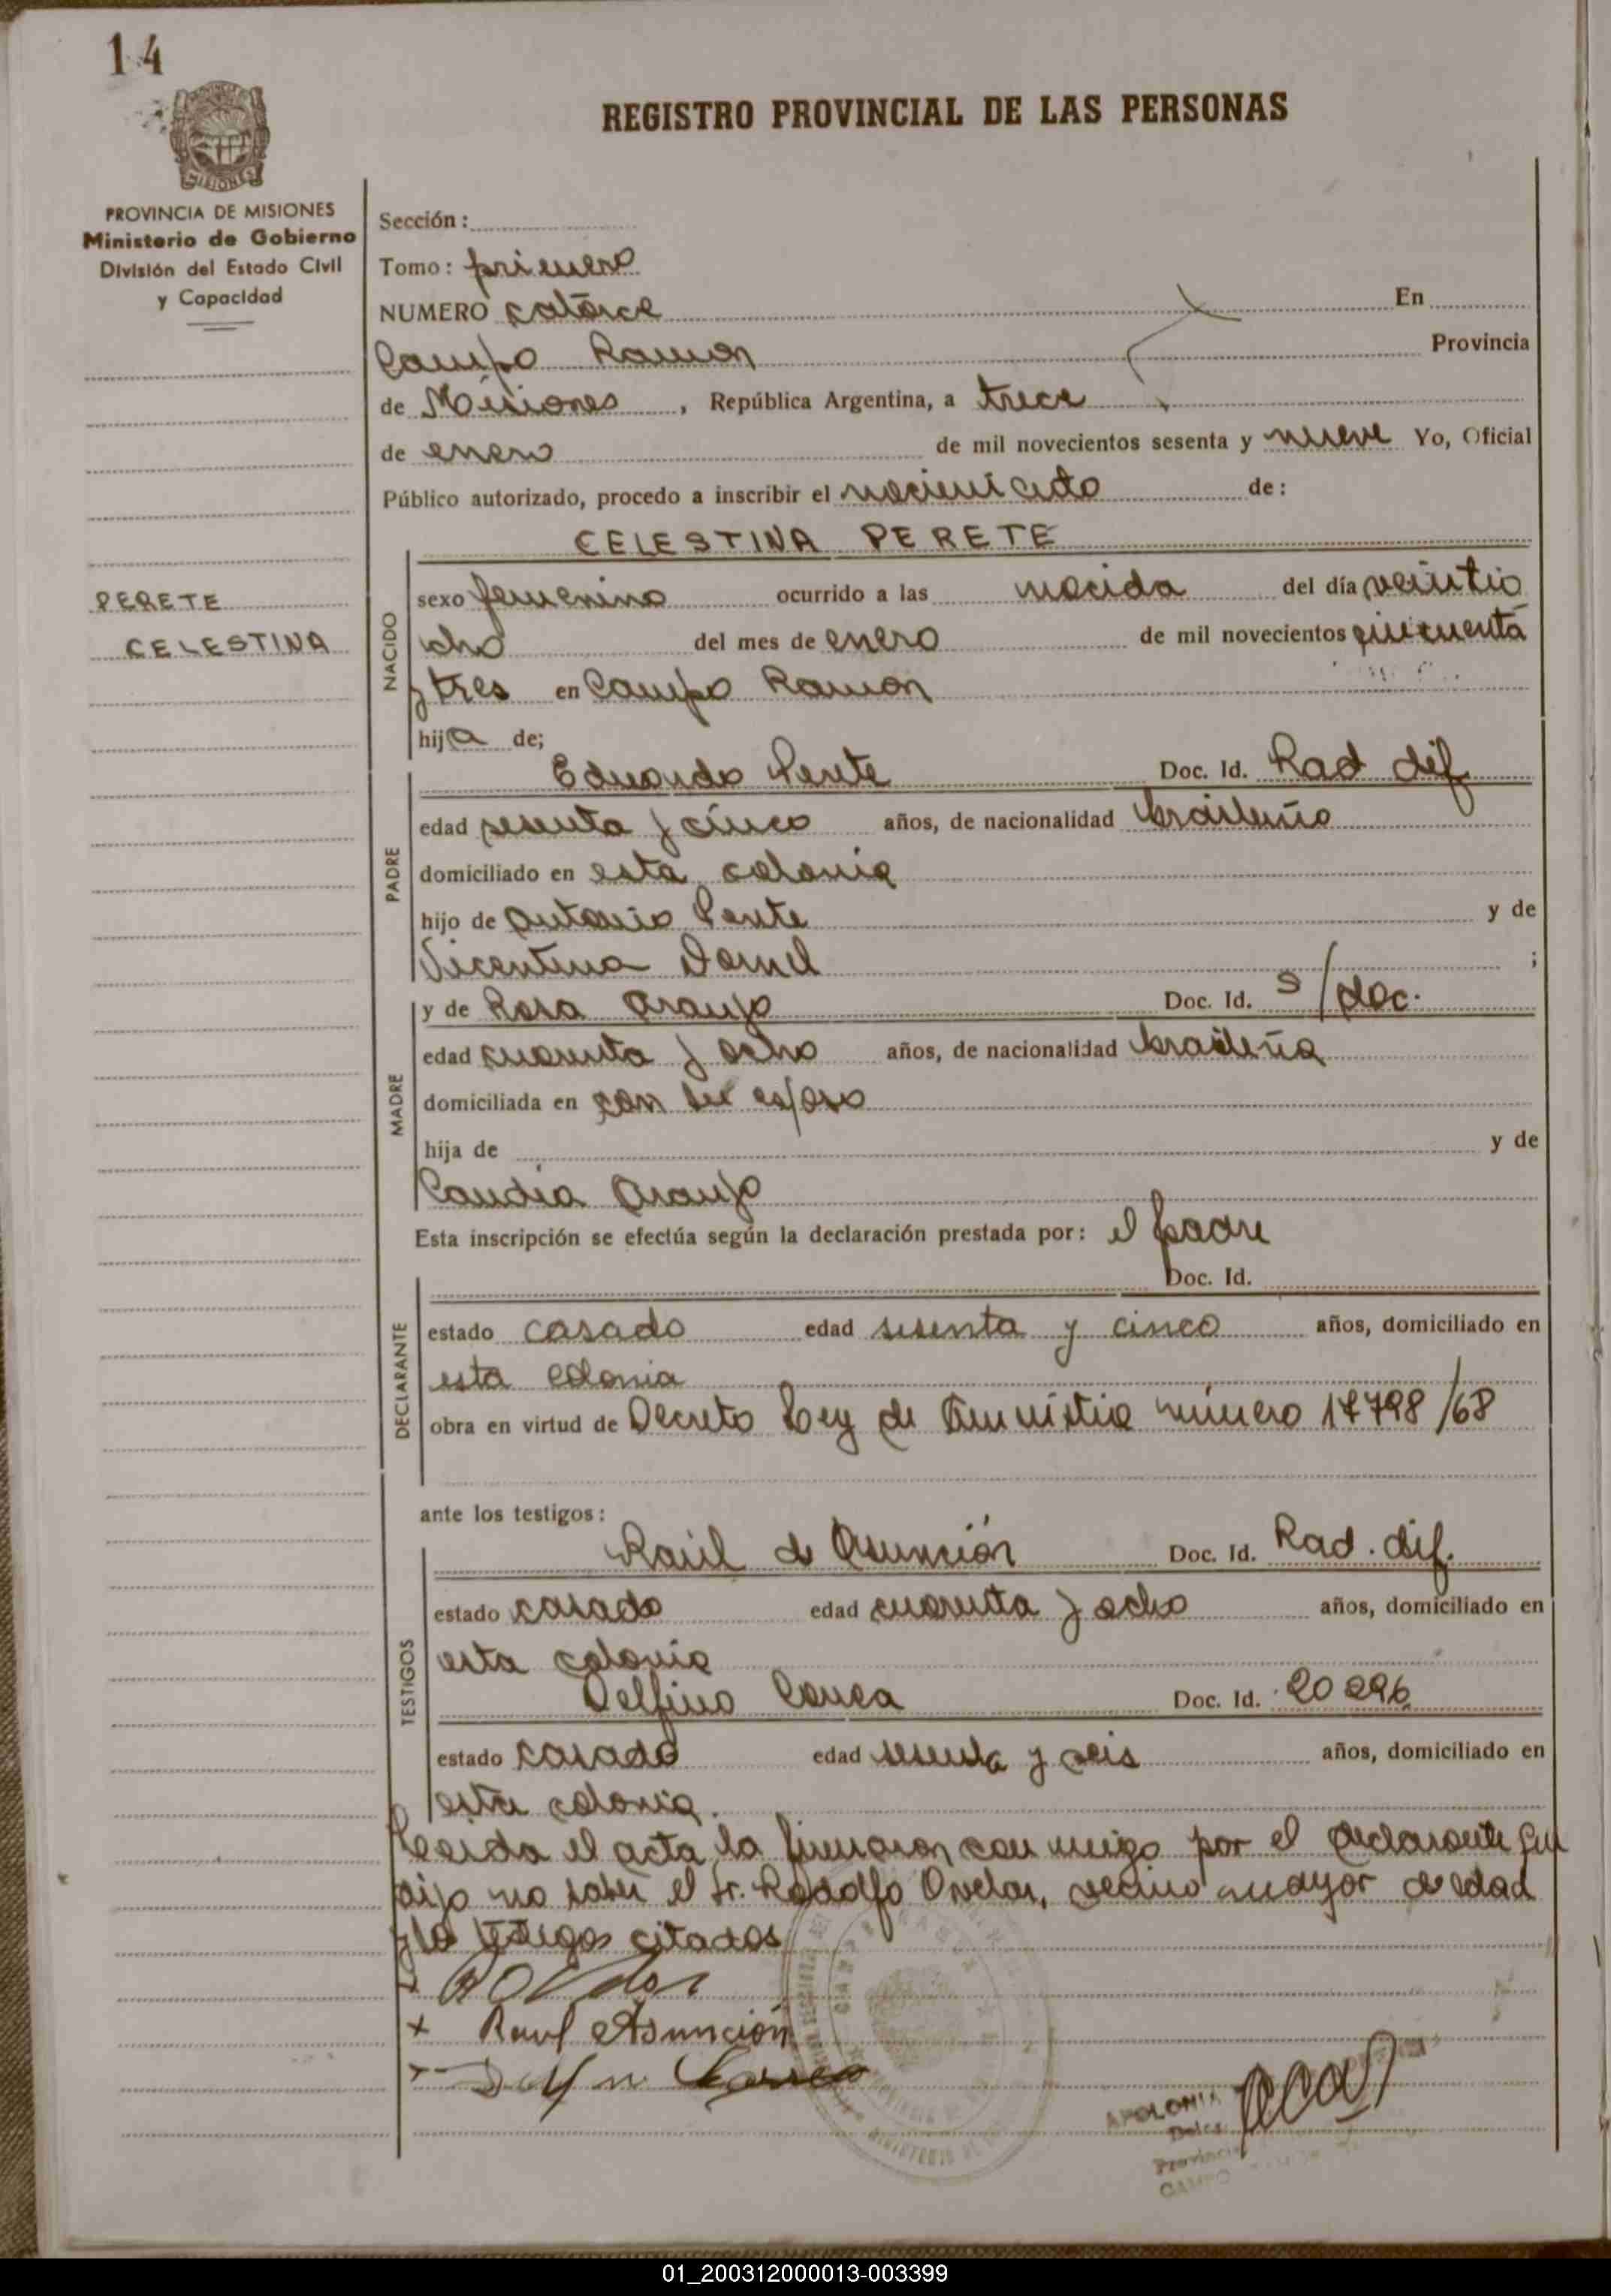 14
MISIONES
REGISTRO PROVINCIAL DE LAS PERSONAS
PROVINCIA DE MISIONES
Ministerio de Gobierno
División del Estado Civil
y Capacidad
PERETE
CELESTINA
Sección:
Tomo: primero
NUMERO catorce En
Campo Ramon Provincia
de Misiones, República Argentina, a trece
de enero de mil novecientos sesenta y nueve Yo, Oficial
Público autorizado, procedo a inscribir el de:
CELESTINA PERETE
NACIDO
sexo femenino ocurrido a las nacida del día veintio
cho del mes de enero de mil novecientos cincuenta
y tres en Campo Ramon
hija de;
PADRE
Eduardo Perete Doc. Id. Rad dif
edad sesenta y cinco años, de nacionalidad brasileño
domiciliado en esta colonia
hijo de Antonio Perete y de
Vicentina ;
MADRE
y de Rosa Araujo Doc. Id. s/doc.
edad cuarenta y ocho años, de nacionalidad brasileña
domiciliada en con su esposo
hija de y de
Araujo
Esta inscripción se efectúa según la declaración prestada por: el padre
Doc. Id.
DECLARANTE
estado casado edad sesenta y cinco años, domiciliado en
esta colonia
obra en virtud de Decreto Ley de Amnistia número 17798/68
ante los testigos:
TESTIGOS
Raúl de Asunción Doc. Id. Rad. dif.
estado casado edad cuarenta y ocho años, domiciliado en
esta colonia
Delfino Doc. Id. 20296
estado casado edad sesenta y seis años, domiciliado en
esta colonia.
Leida el acta la firmaron conmigo por el declarante que
dijo no saber el Sr. Rodolfo Ovelar, vecino mayor de edad
y los testigos citados
+
+ Raul Asunción
+
01_200312000013-003399